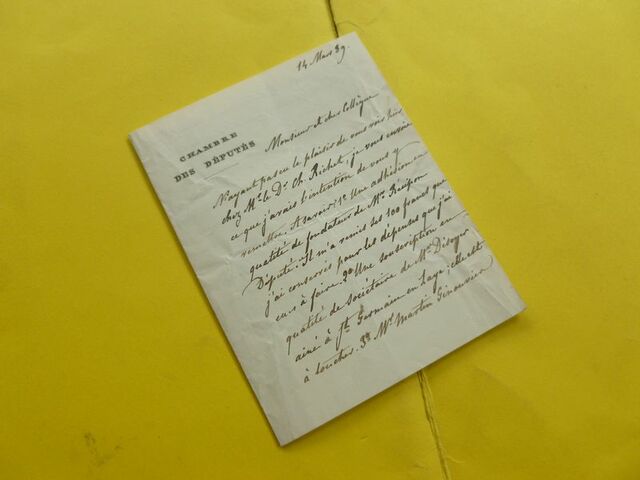 14 Mars 89.
CHAMBRE
DES DÉPUTÉS
Monsieur et cher Collègue
N'ayant pas eu le plaisir de vous voir hier
chez Mr. le Dr. Ch. Richet, je vous envoie
ce que j'avais l'intention de vous y
remettre. A savoir: 1o Une adhésion en
qualité de fondateur de Mr. Récipon
Député. Il m'a remis les 100 francs que
j'ai conservés pour les dépenses que j'ai
eues à faire. 2o Une souscription en
qualité de sociétaire de Mr.
ainé à St. Germain en Laye; elle est
à toucher. 3o Mr. Martin